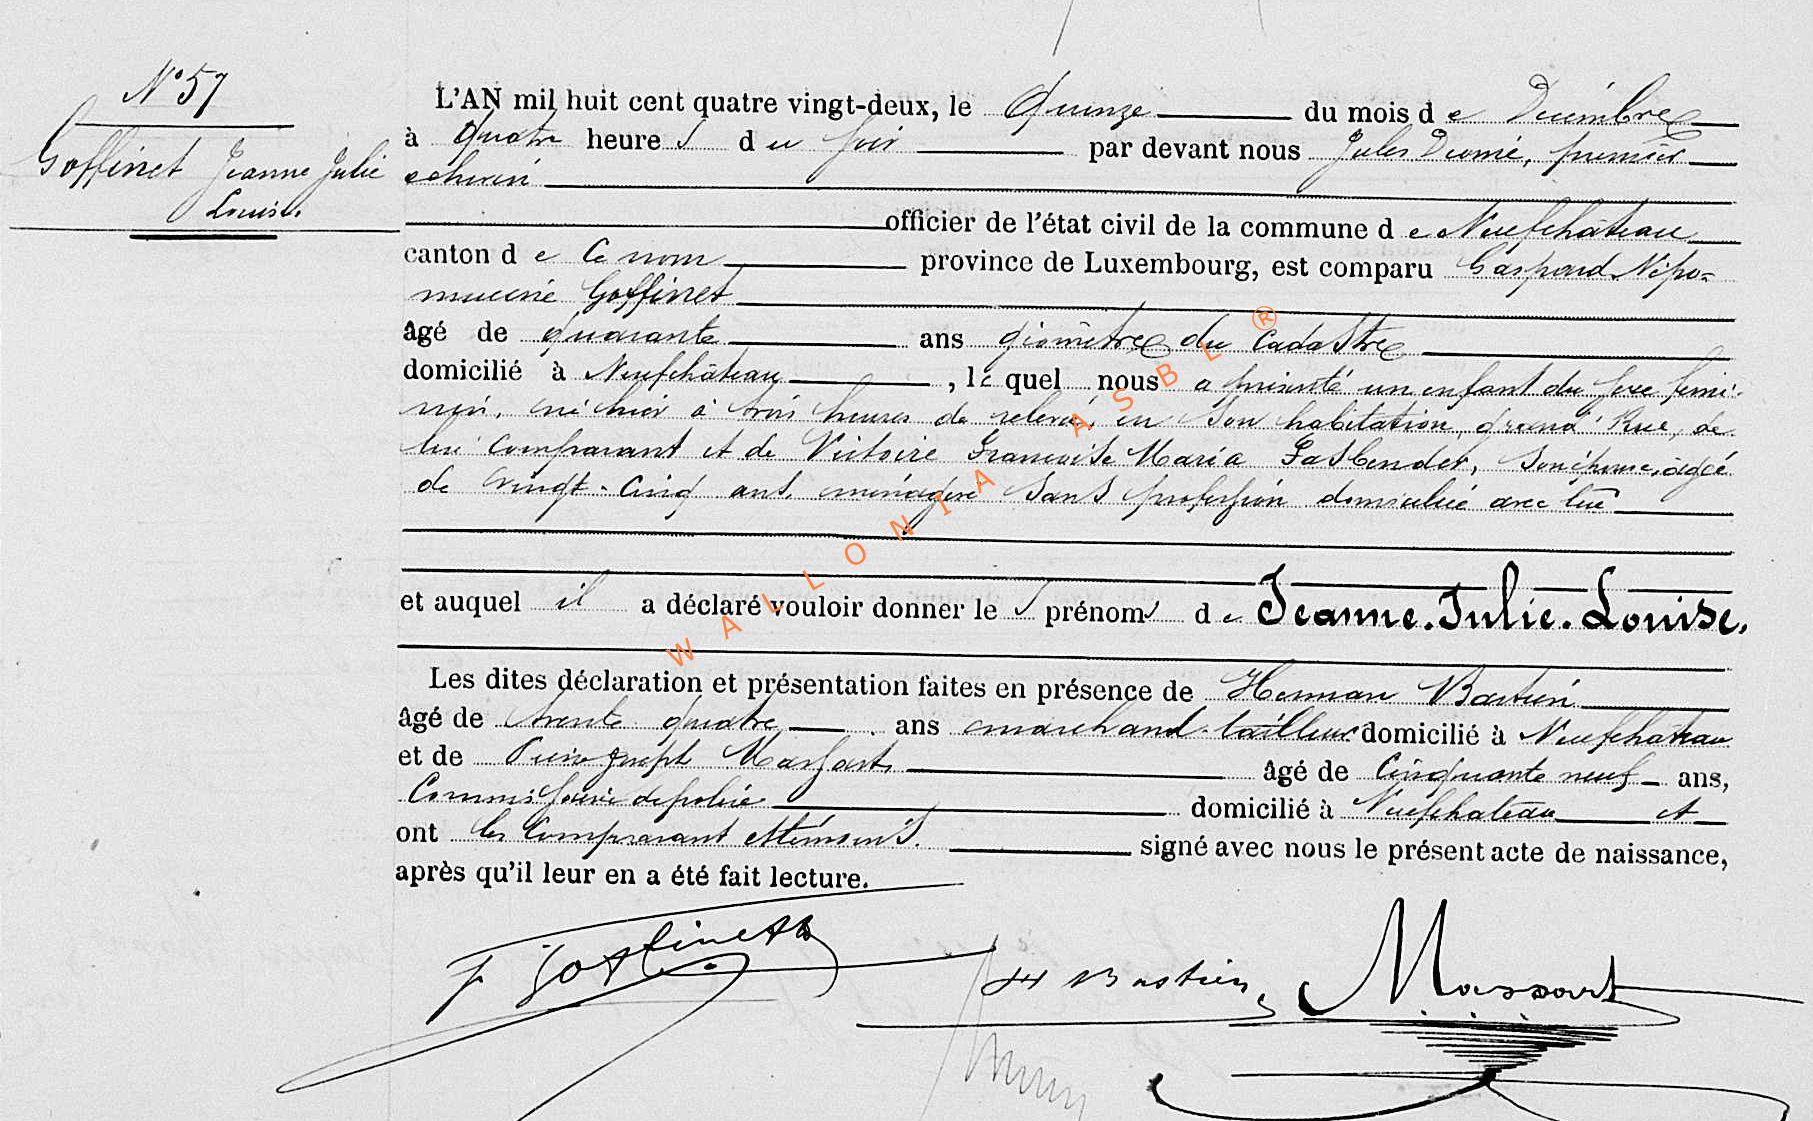 N° 57
Goffinet Jeanne Julie
Louise.
L'AN mil huit cent quatre vingt-deux, le Quinze du mois de Décembre
à quatre heures du soir par devant nous Jules premier
échevin
officier de l'état civil de la commune de Neufchâteau
canton de Ce nom province de Luxembourg, est comparu Gaspard Népo=
mucène Goffinet
âgé de quarante ans géomètre du Cadastre
domicilié à Neufchâteau, le quel nous a présenté un enfant du sexe fémi-
nin, né hier à trois heures de relevée, en son habitation, grand'Rue, de
lui comparant et de Victoire Françoise Maria Fasbender, son épouse, âgée
de vingt-cinq ans, ménagère sans profession domiciliée avec lui
et auquel il a déclaré vouloir donner les prénoms de Jeanne.Julie.Louise.
Les dites déclaration et présentation faites en présence de Herman Bastien
âgé de trente quatre ans marchand-tailleur domicilié à Neufchâteau
et de Pierre Joseph Massart, âgé de Cinquante neuf ans,
Commissaire de police domicilié à Neufchateau et
ont les Comparant et témoins. signé avec nous le présent acte de naissance,
après qu'il leur en a été fait lecture.
Goffinet
H Bastien
Massart
WALLONIA ASBL ®